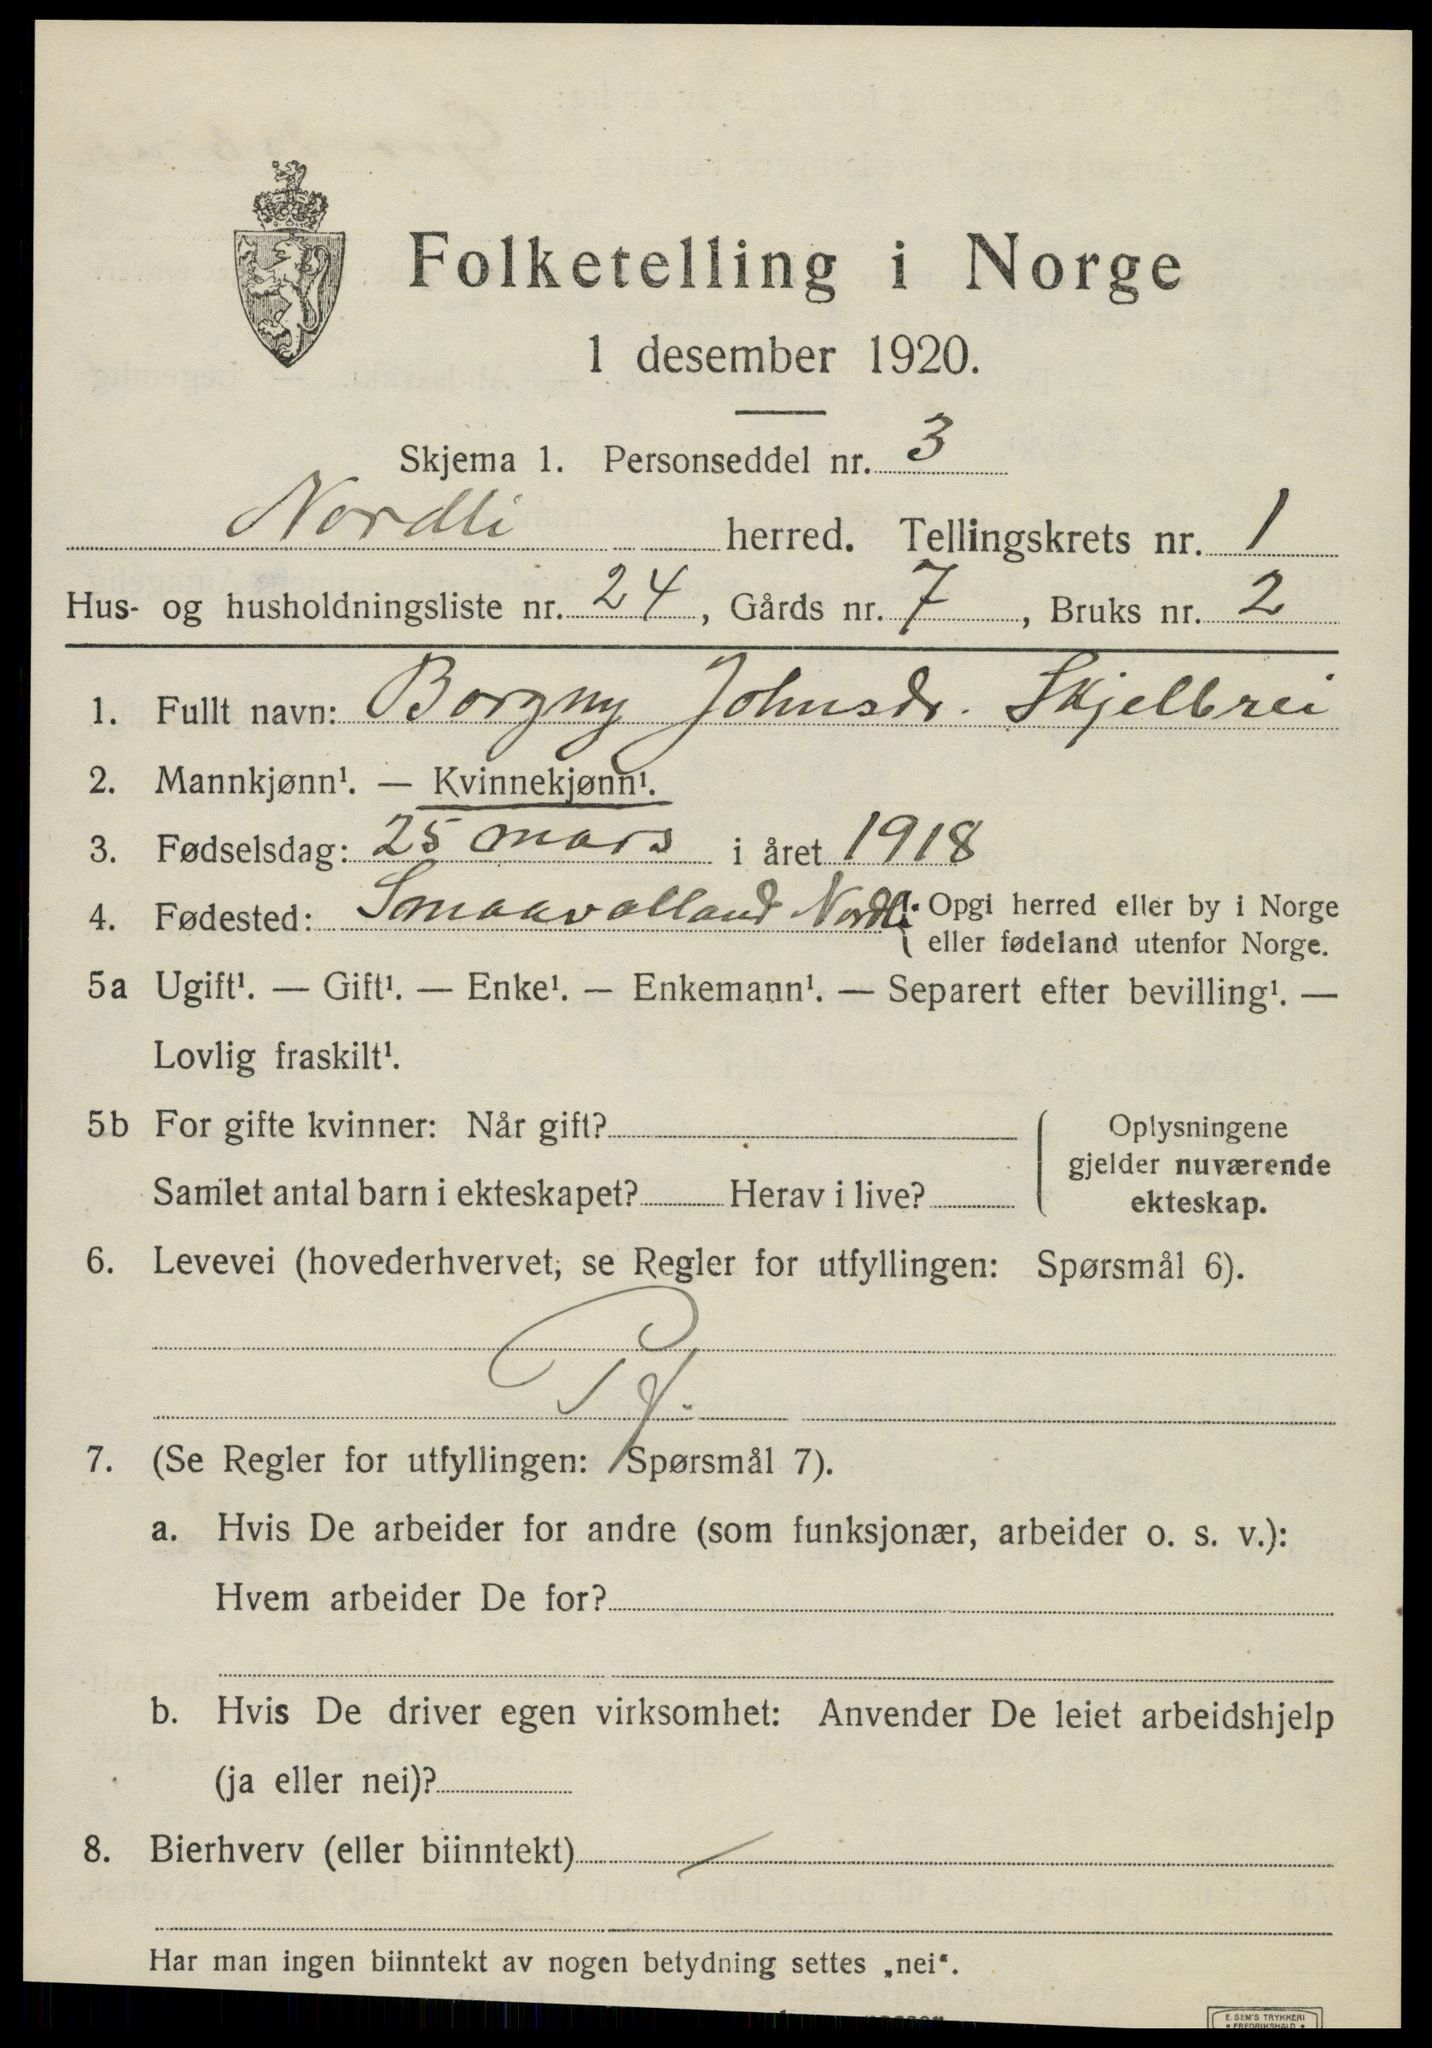 Folketelling i Norge
1 desember 1920.
Skjema 1. Personseddel nr. 3
Nordli herred. Tellingskrets nr. 1
Hus- og husholdningsliste nr. 24, Gårds nr. 7, Bruks nr. 2
1. Fullt navn: Borgny Johnsdr. Skjelbrei
2. Mannkjønn¹. — Kvinnekjønn¹.
3. Fødselsdag: 25 mars i året 1918
4. Fødested: Smaavolland Nordli. Opgi herred eller by i Norge
eller fødeland utenfor Norge.
5a Ugift¹. — Gift¹. — Enke¹. — Enkemann¹. — Separert efter bevilling¹. —
Lovlig fraskilt¹.
5b For gifte kvinner: Når gift?
Samlet antal barn i ekteskapet? Herav i live?
Oplysningene
gjelder nuværende
ekteskap.
6. Levevei (hovederhvervet, se Regler for utfyllingen: Spørsmål 6).
7. (Se Regler for utfyllingen: Spørsmål 7).
a. Hvis De arbeider for andre (som funksjonær, arbeider o. s. v.):
Hvem arbeider De for?
b. Hvis De driver egen virksomhet: Anvender De leiet arbeidshjelp
(ja eller nei)?
8. Bierhverv (eller biinntekt)
Har man ingen biinntekt av nogen betydning settes „nei“.
E. SEM'S TRYKKERI
FREDRIKSHALD